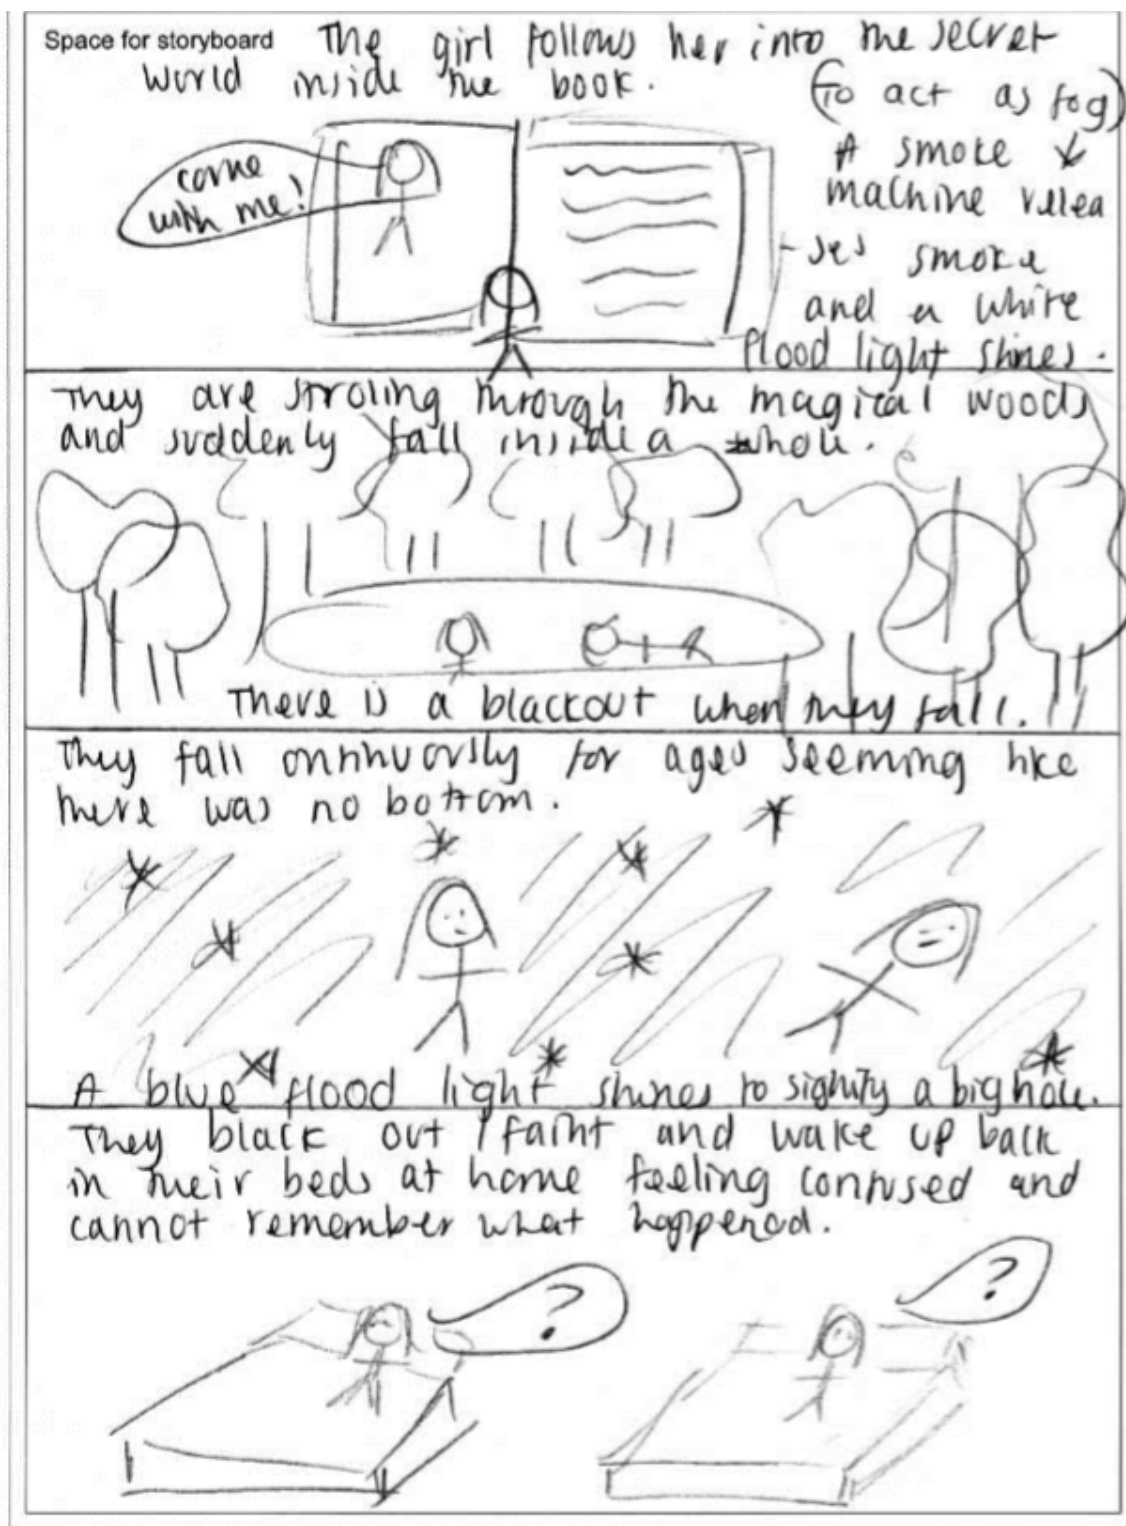 Space for storyboard The girl follows her into the secret
world inside the book.
(To act as fog)
A smoke
machine relea
-ses smoke
and a white
flood light shines.
come
with me!
They are stroling through the magical woods
and suddenly fall inside a whole.
There is a blackout when they fall.
They fall continuously for ages seeming like
there was no bottom.
A blue flood light shines to signify a big hole.
They black out / faint and wake up back
in their beds at home feeling confused and
cannot remember what happened.
?
?